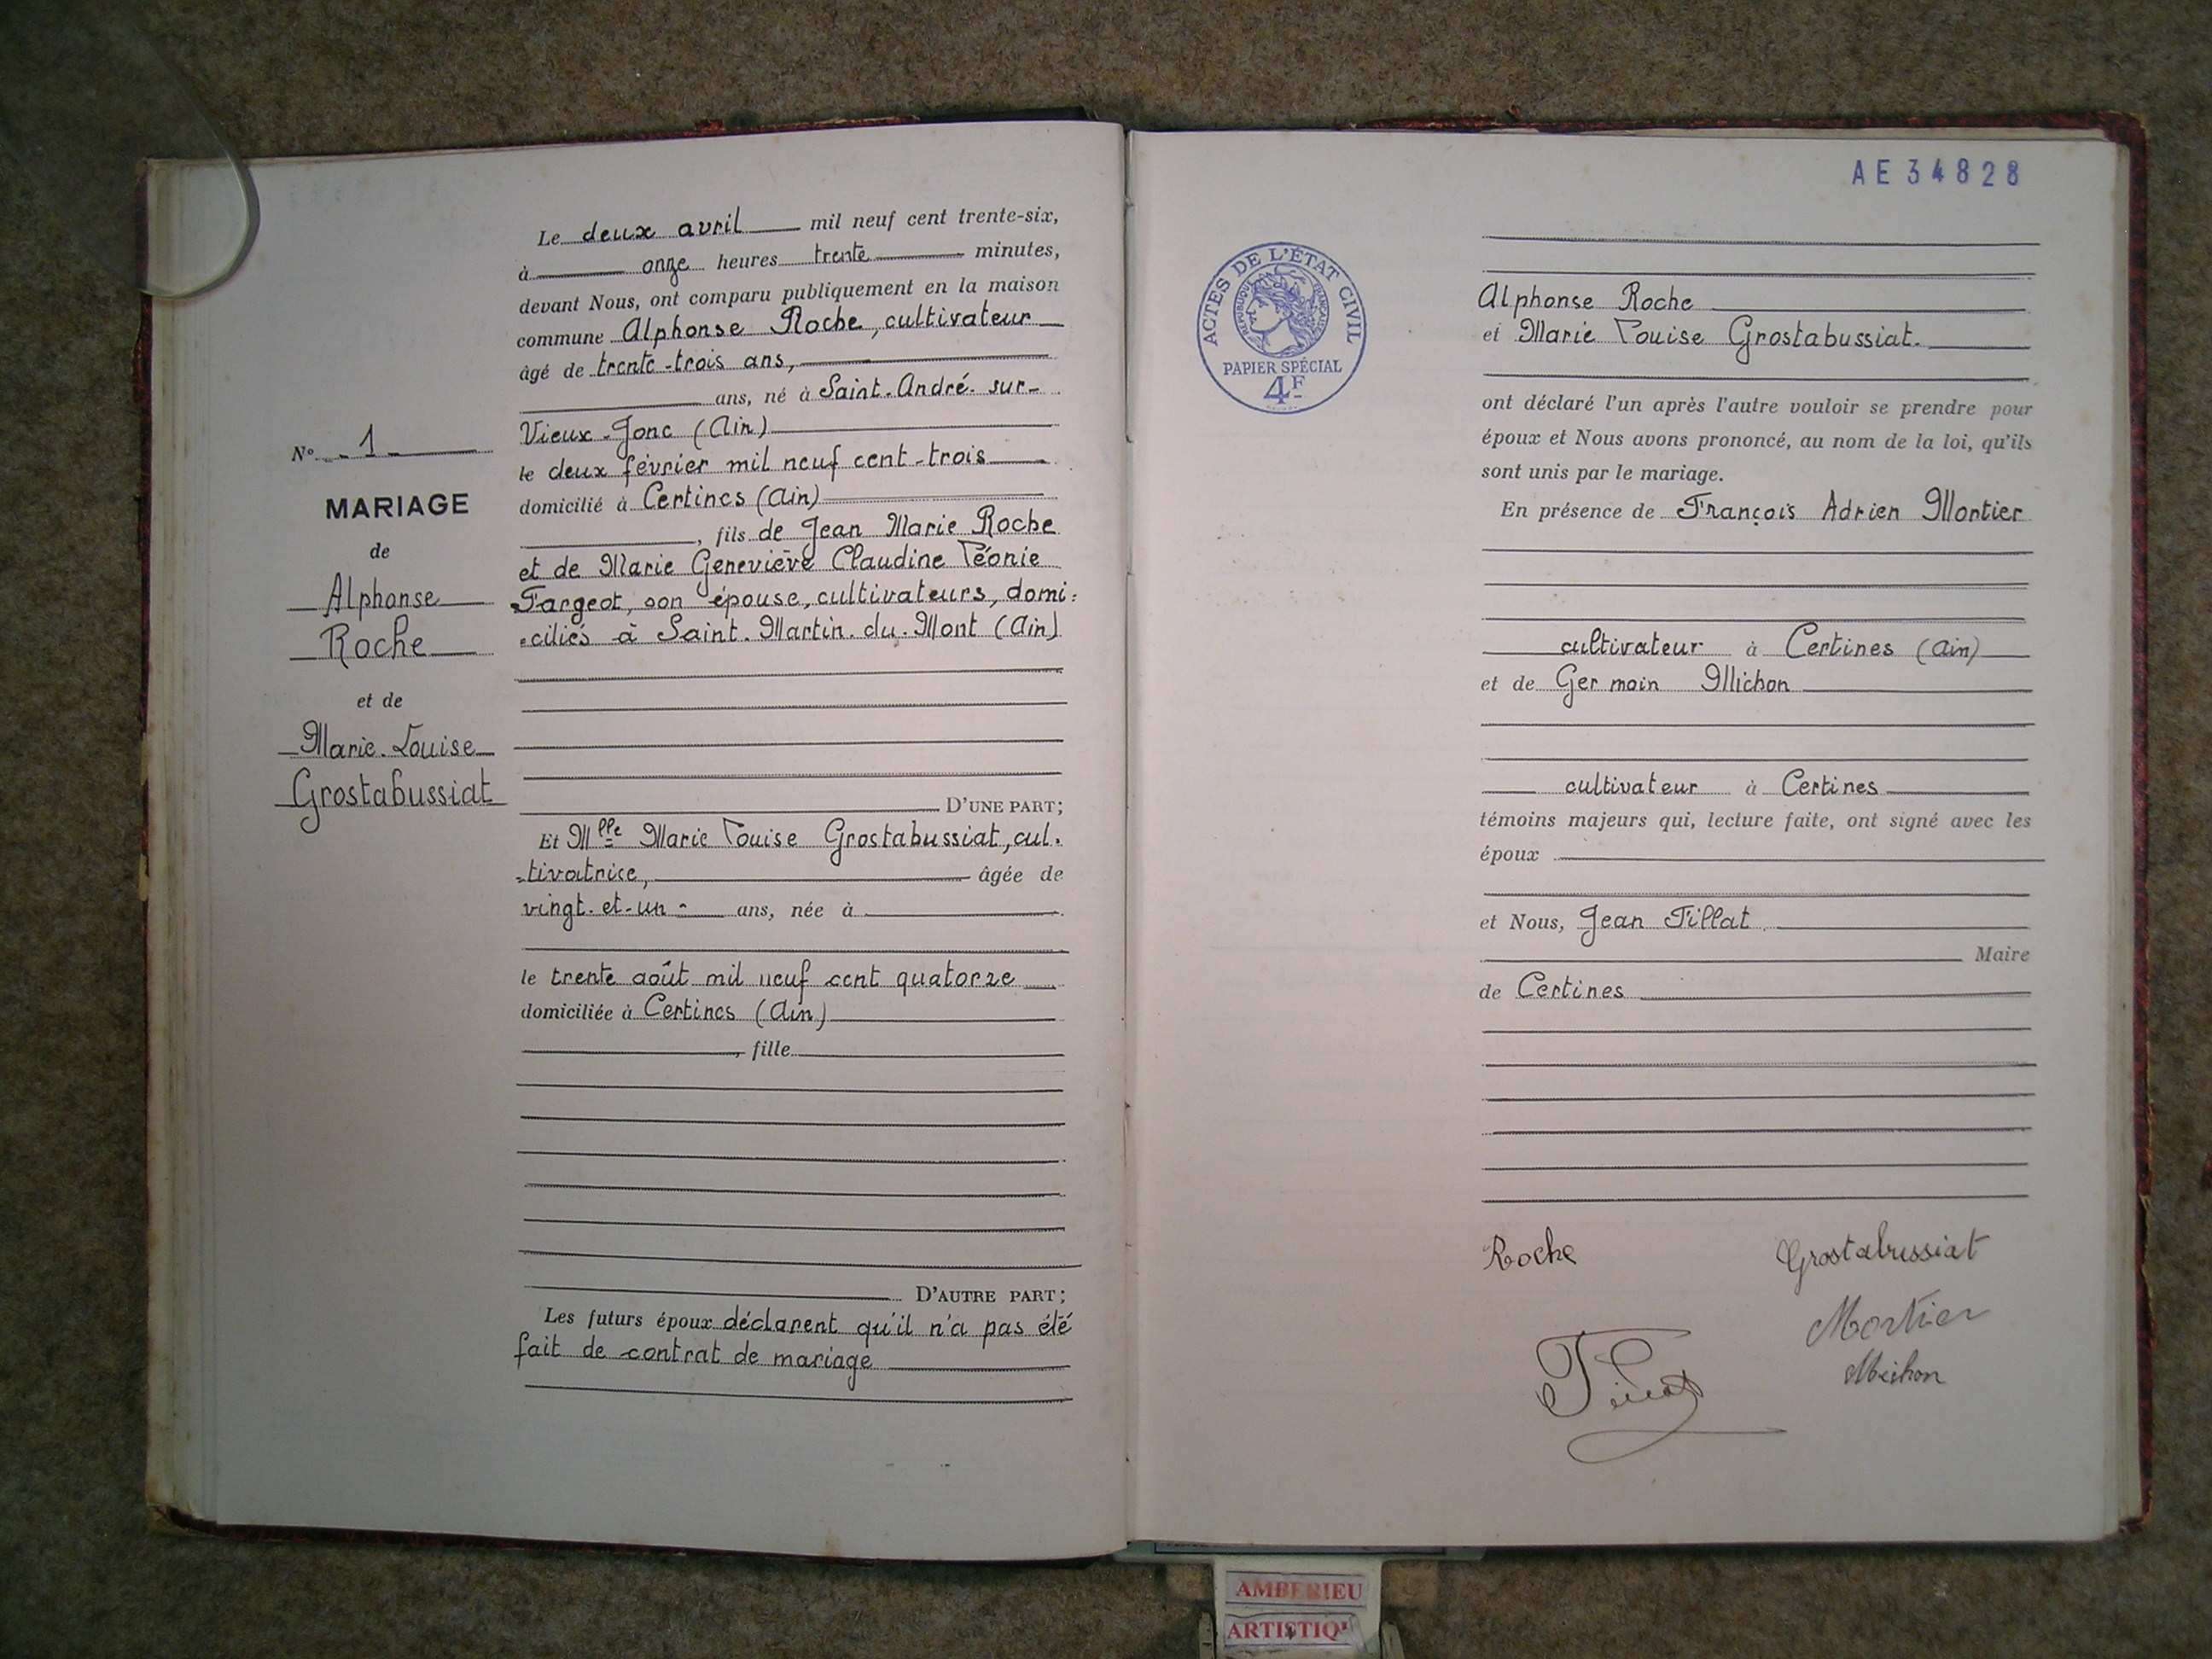 Nº 1
MARIAGE
de
Alphonse
Roche
et de
Marie-Louise
Grostabussiat
Le deux avril mil neuf cent trente-six,
à onze heures trente minutes,
devant Nous, ont comparu publiquement en la maison
commune Alphonse Roche, cultivateur
âgé de trente-trois ans,
ans, né à Saint-André-sur-
Vieux-Jonc (Ain)
le deux février mil neuf cent-trois
domicilié à Certines (Ain)
, fils de Jean Marie Roche
et de Marie Geneviève Claudine Léonie
Fargeot, son épouse, cultivateurs, domi=
=ciliés à Saint-Martin-du-Mont (Ain)
D'UNE PART;
Et Mlle Marie Louise Grostabussiat, cul-
=tivatrice, âgée de
vingt-et-un - ans, née à
le trente août mil neuf cent quatorze
domiciliée à Certines (Ain)
, fille
D'AUTRE PART;
Les futurs époux déclarent qu'il n'a pas été
fait de contrat de mariage
AE34828
ACTES DE L'ÉTAT CIVIL
RÉPUBLIQUE FRANÇAISE
PAPIER SPÉCIAL
4F
Alphonse Roche
et Marie Louise Grostabussiat.
ont déclaré l'un après l'autre vouloir se prendre pour
époux et Nous avons prononcé, au nom de la loi, qu'ils
sont unis par le mariage.
En présence de François Adrien Mortier
cultivateur à Certines (Ain)
et de Germain Michon
cultivateur à Certines
témoins majeurs qui, lecture faite, ont signé avec les
époux
et Nous, Jean Tillat
Maire
de Certines
Roche Grostabussiat
Mortier
Michon
Tillat
AMBERIEU
ARTISTIQ